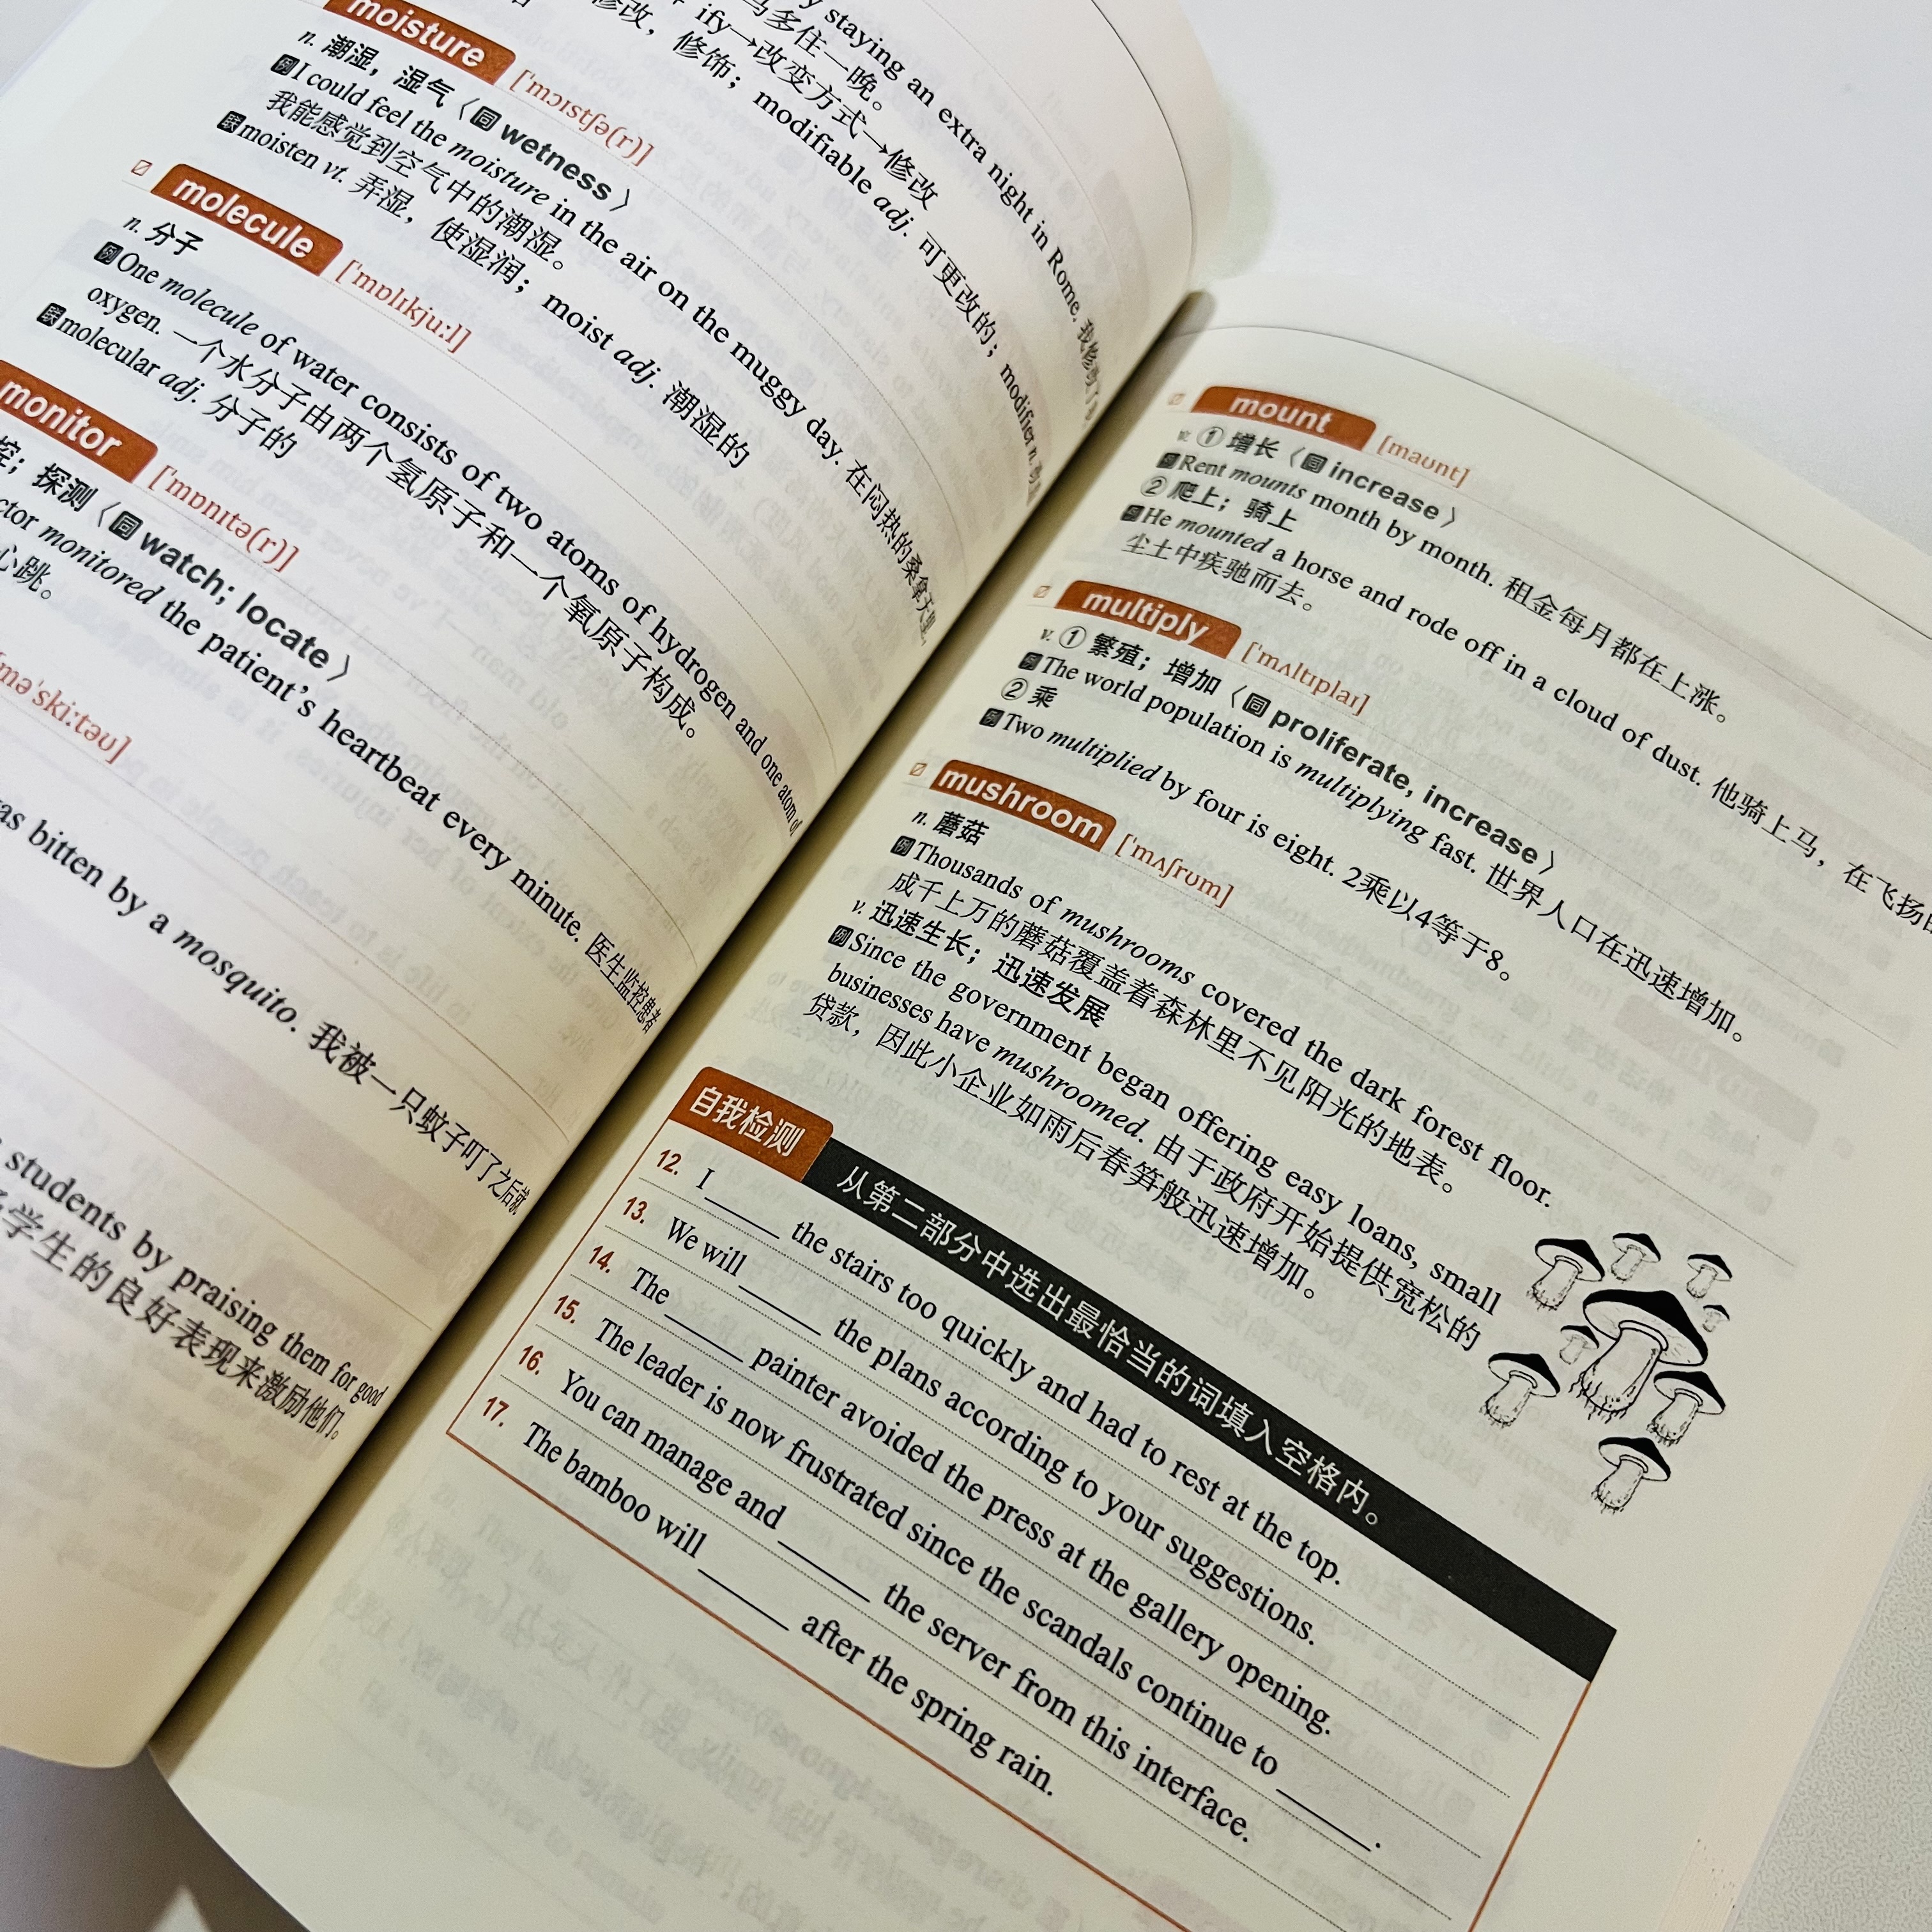 staying an extra night in Rome. 我修改了
马多住一晚。
ify→改变方式→修改
修改，修饰；modifiable adj. 可更改的；modifier n.
moisture [ˈmɔɪstʃə(r)]
n. 潮湿，湿气〈同wetness〉
例I could feel the moisture in the air on the muggy day. 在闷热的桑拿天里，
我能感觉到空气中的潮湿。
联moisten vt. 弄湿，使湿润；moist adj. 潮湿的
molecule [ˈmɒlɪkjuːl]
n. 分子
例One molecule of water consists of two atoms of hydrogen and one atom of
oxygen. 一个水分子由两个氢原子和一个氧原子构成。
联molecular adj. 分子的
monitor [ˈmɒnɪtə(r)]
控；探测〈同watch; locate〉
ctor monitored the patient's heartbeat every minute. 医生监控患者
心跳。
[məˈskiːtəʊ]
as bitten by a mosquito. 我被一只蚊子叮了之后就
students by praising them for good
学生的良好表现来激励他们。
mount [maʊnt]
v. ① 增长〈同increase〉
例Rent mounts month by month. 租金每月都在上涨。
② 爬上；骑上
例He mounted a horse and rode off in a cloud of dust. 他骑上马，在飞扬的
尘土中疾驰而去。
multiply [ˈmʌltɪplaɪ]
v. ① 繁殖；增加〈同proliferate, increase〉
例The world population is multiplying fast. 世界人口在迅速增加。
② 乘
例Two multiplied by four is eight. 2乘以4等于8。
mushroom [ˈmʌʃrʊm]
n. 蘑菇
例Thousands of mushrooms covered the dark forest floor.
成千上万的蘑菇覆盖着森林里不见阳光的地表。
v. 迅速生长；迅速发展
例Since the government began offering easy loans, small
businesses have mushroomed. 由于政府开始提供宽松的
贷款，因此小企业如雨后春笋般迅速增加。
自我检测 从第二部分中选出最恰当的词填入空格内。
12. I______ the stairs too quickly and had to rest at the top.
13. We will ______ the plans according to your suggestions.
14. The ______ painter avoided the press at the gallery opening.
15. The leader is now frustrated since the scandals continue to ______.
16. You can manage and ______ the server from this interface.
17. The bamboo will ______ after the spring rain.